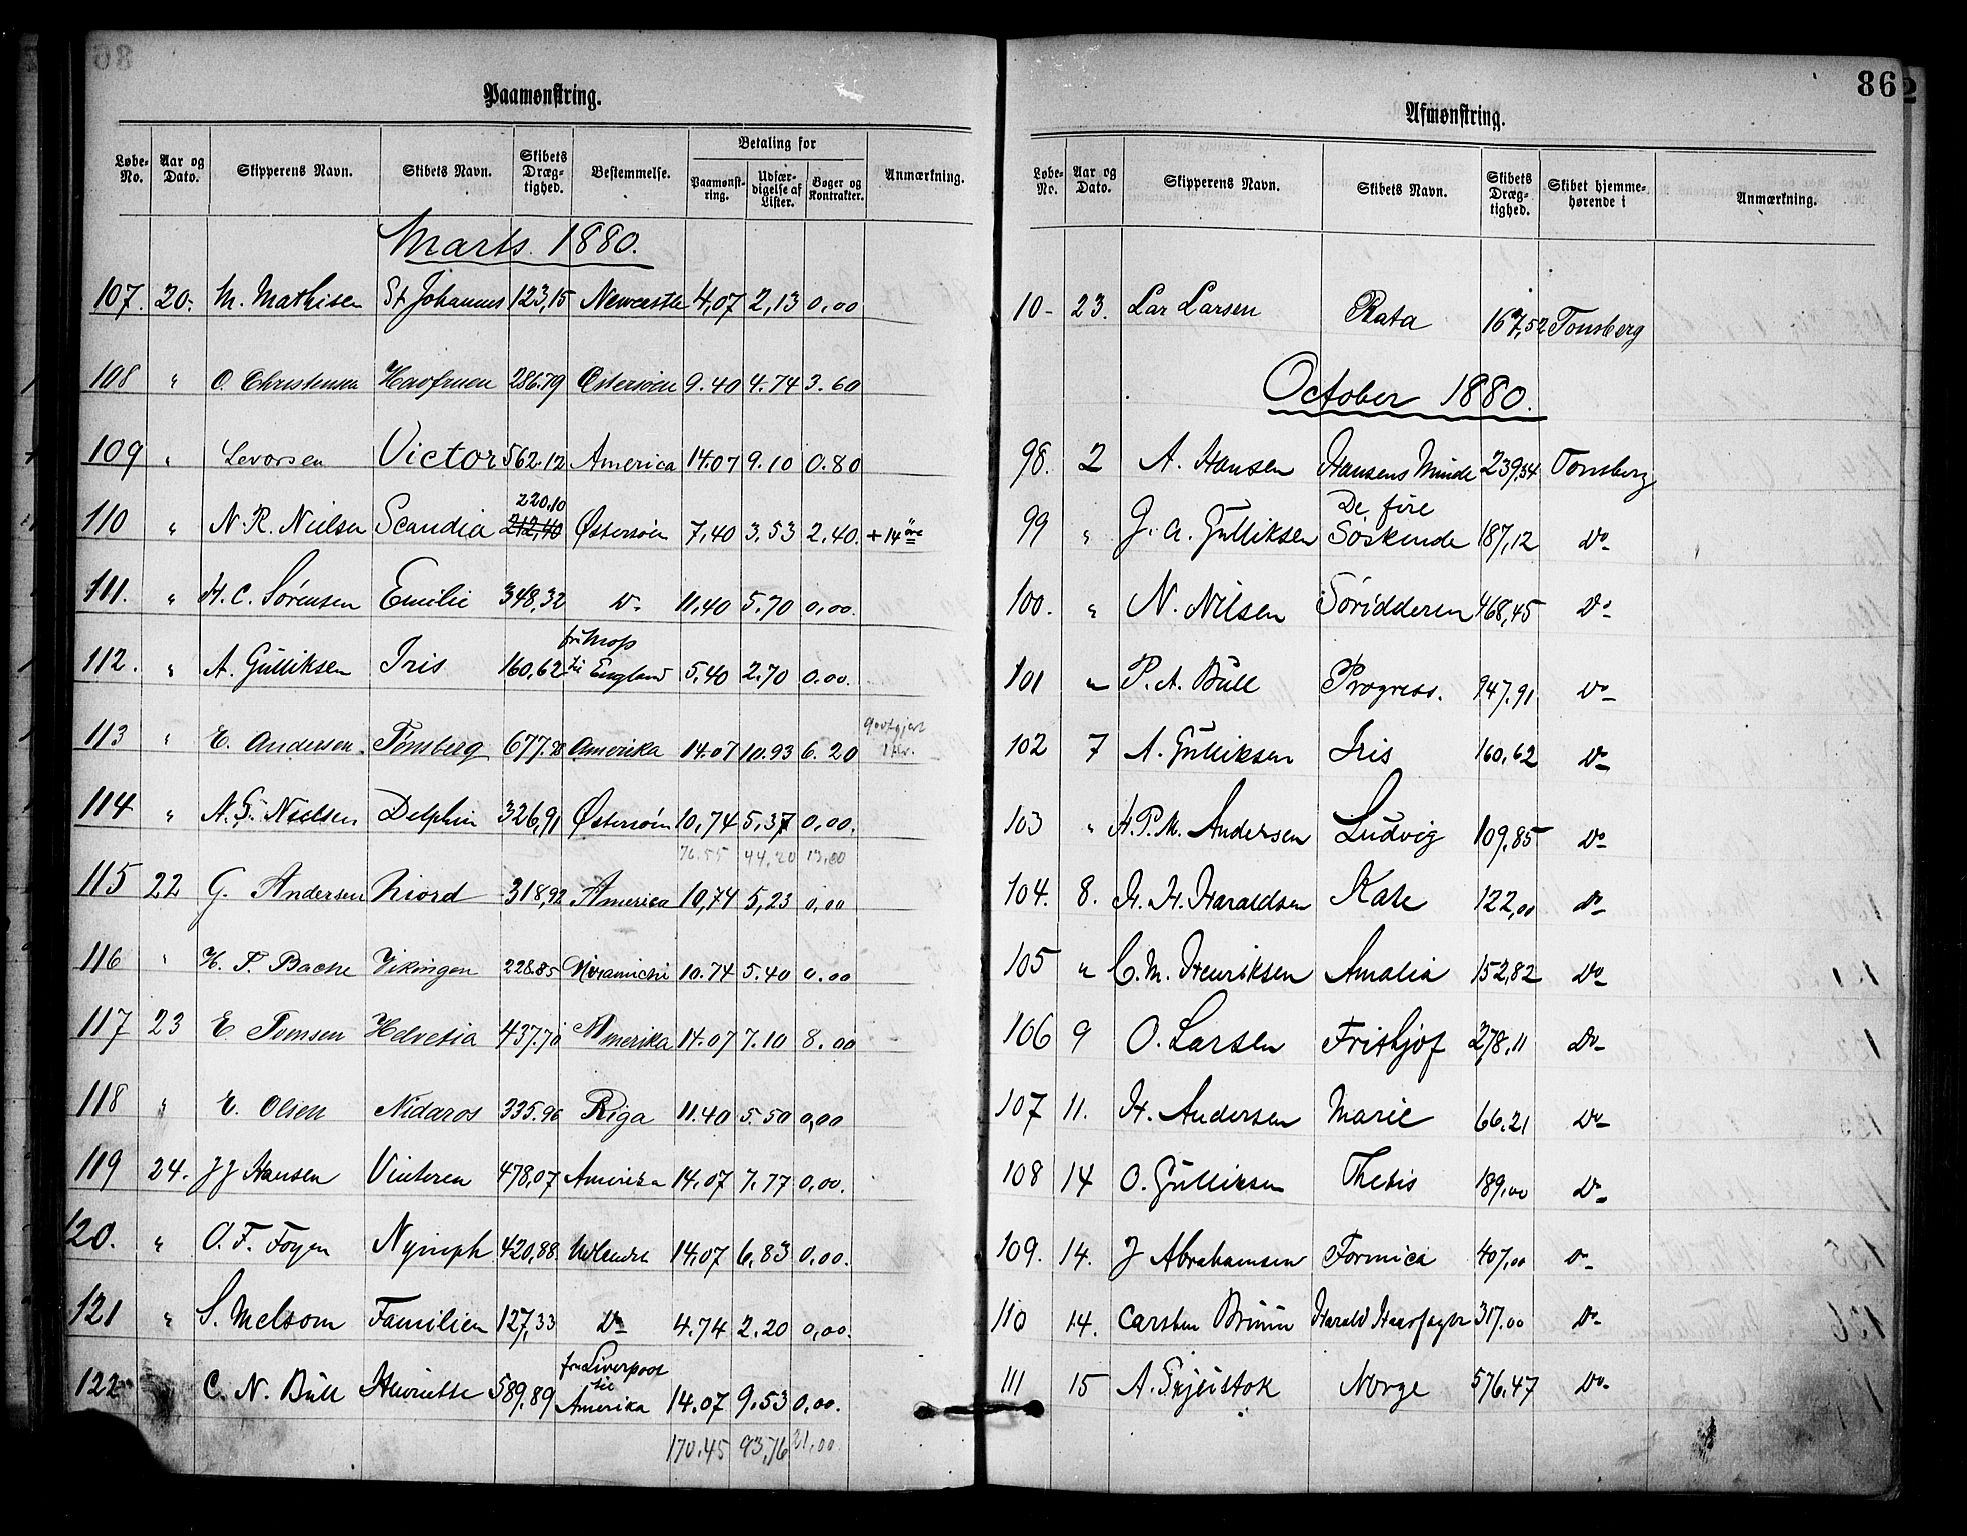 Paamønstring.
Løbe-No. Aar og Dato. Skipperens Navn. Skibets Navn. Skibets Dræg-tighed. Bestemmelse. Betaling for Paamønst-ring. Udfær-digelse af Lister. Bøger og Kontrakter. Anmærkning.
Marts. 1880.
107. 20. M. Mathisen St Johannes 123,15 Newcastle 4,07 2,13 0,00
108 " O. Christensen Havfruen 286.79 Østersøen 9.40 4.74 3.60
109 " Levorsen Victor 562.12 America 14.07 9.10 0.80
220,10
110 " N. R. Nielsen Scandia 212,40 Østersøen 7,40 3,53 2,40. + 14 øre
111. " H. C. Sørensen Emilie 348,32 Do 11,40 5,70 0,00.
fra Moss
112. " A. Gulliksen Iris 160,62 til England 5,40 2,70 0,00.
113 " E. Andersen. Tönsberg 677.28 Amerika 14.07 10.93 6.20
114 " N. G. Nielsen Delphin 326,91 Østersøen 10,74 5,37 0,00.
76.55 44,20 13,00
115 22 G. Andersen Niord 318,92 America 10,74 5,23 0,00
116 " H. T. Bache Vikingen 228.85 Miramichi 10.74 5.40 0.00
117 23 E. Tomsen Helvetia 437.70 Amerika 14.07 7.10 8.00
118 " E. Olsen Nidaros 335.96 Riga 11.40 5.50 0,00
119 24. J J Hansen Vinteren 478,07 Amerika 14,07 7,77 0,00.
120. " O. F. Foyen Nymph 420,88. Udlandet 14,07 6,83 0,00.
121 " S. Melsom Familien 127,33 Do 4.74 2.20 0,00.
fra Liverpool
122 C. N. Bull Henriette 589,89 til Amerika 14,07 9,53 0,00.
170,45 93,76 21,00.
86
Afmønstring.
Løbe-No. Aar og Dato. Skipperens Navn. Skibets Navn. Skibets Dræg-tighed. Skibet hjemme-hørende i Anmærkning.
10- 23. Lar Larsen Rata 167,52 Tonsberg
October 1880.
98. 2 A. Hansen Hansens Minde 239,34 Tonsberg
De fire
99 " G. A. Gulliksen Söskende 187,12 Do
100. " N. Nilsen Söridderen 468,45 Do
101 " P. A. Bull Progress. 947.91 Do
102 7 A. Gulliksen Iris 160,62 Do
103 " H. P. M. Andersen Ludvig 109,85 Do
104. 8. H. H. Haraldsen Kate 122,00 Do
105 " C. M. Henriksen Amalia 152,82 Do
106 9 O. Larsen Frithjof 278,11 Do
107 11. H. Andersen Marie 66.21 Do
108 14 O. Gulliksen Thetis 189,00 Do
109. 14. J Abrahamsen Formica 407,00 Do
110 14. Carsten Bruun Harald Haarfager 317.00 Do
111 15 A. Gjeistok Norge 576.47 Do